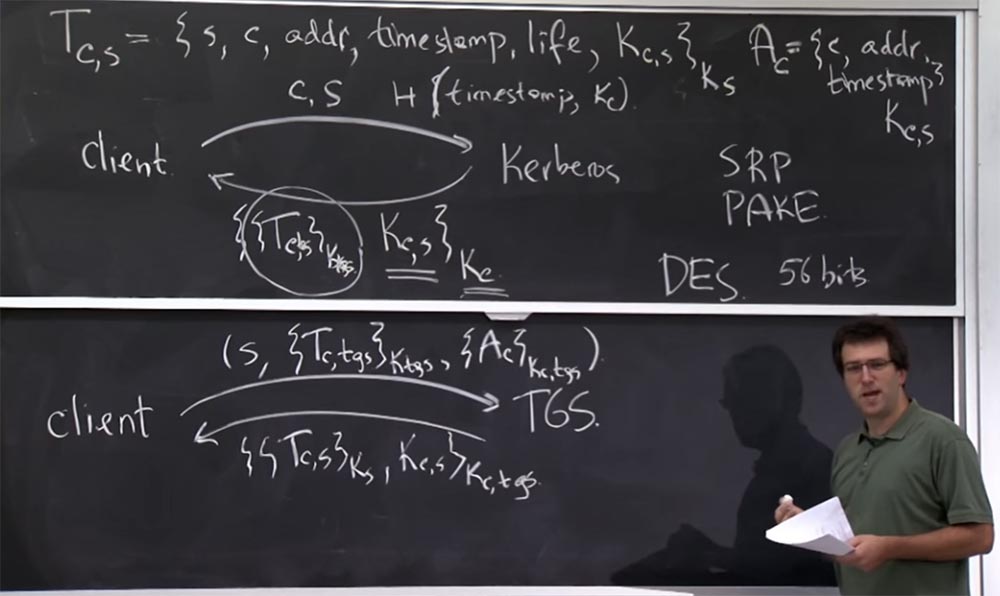 T_{c,s} = {s, c, addr, timestamp, life, K_{c,s}}_{K_s}
A_c = {c, addr, timestamp}_{K_{c,s}}
c, s H(timestamp, K_c).
client
Kerberos
{{T_{c,s}}_{K_{tgs}} K_{c,s}}_{K_c}
SRP
PAKE.
DES. 56 bits
(s, {T_{c,tgs}}_{K_{tgs}}, {A_c}_{K_{c,tgs}}).
client
TGS.
{{T_{c,s}}_{K_s}, K_{c,s}}_{K_{c,tgs}}.